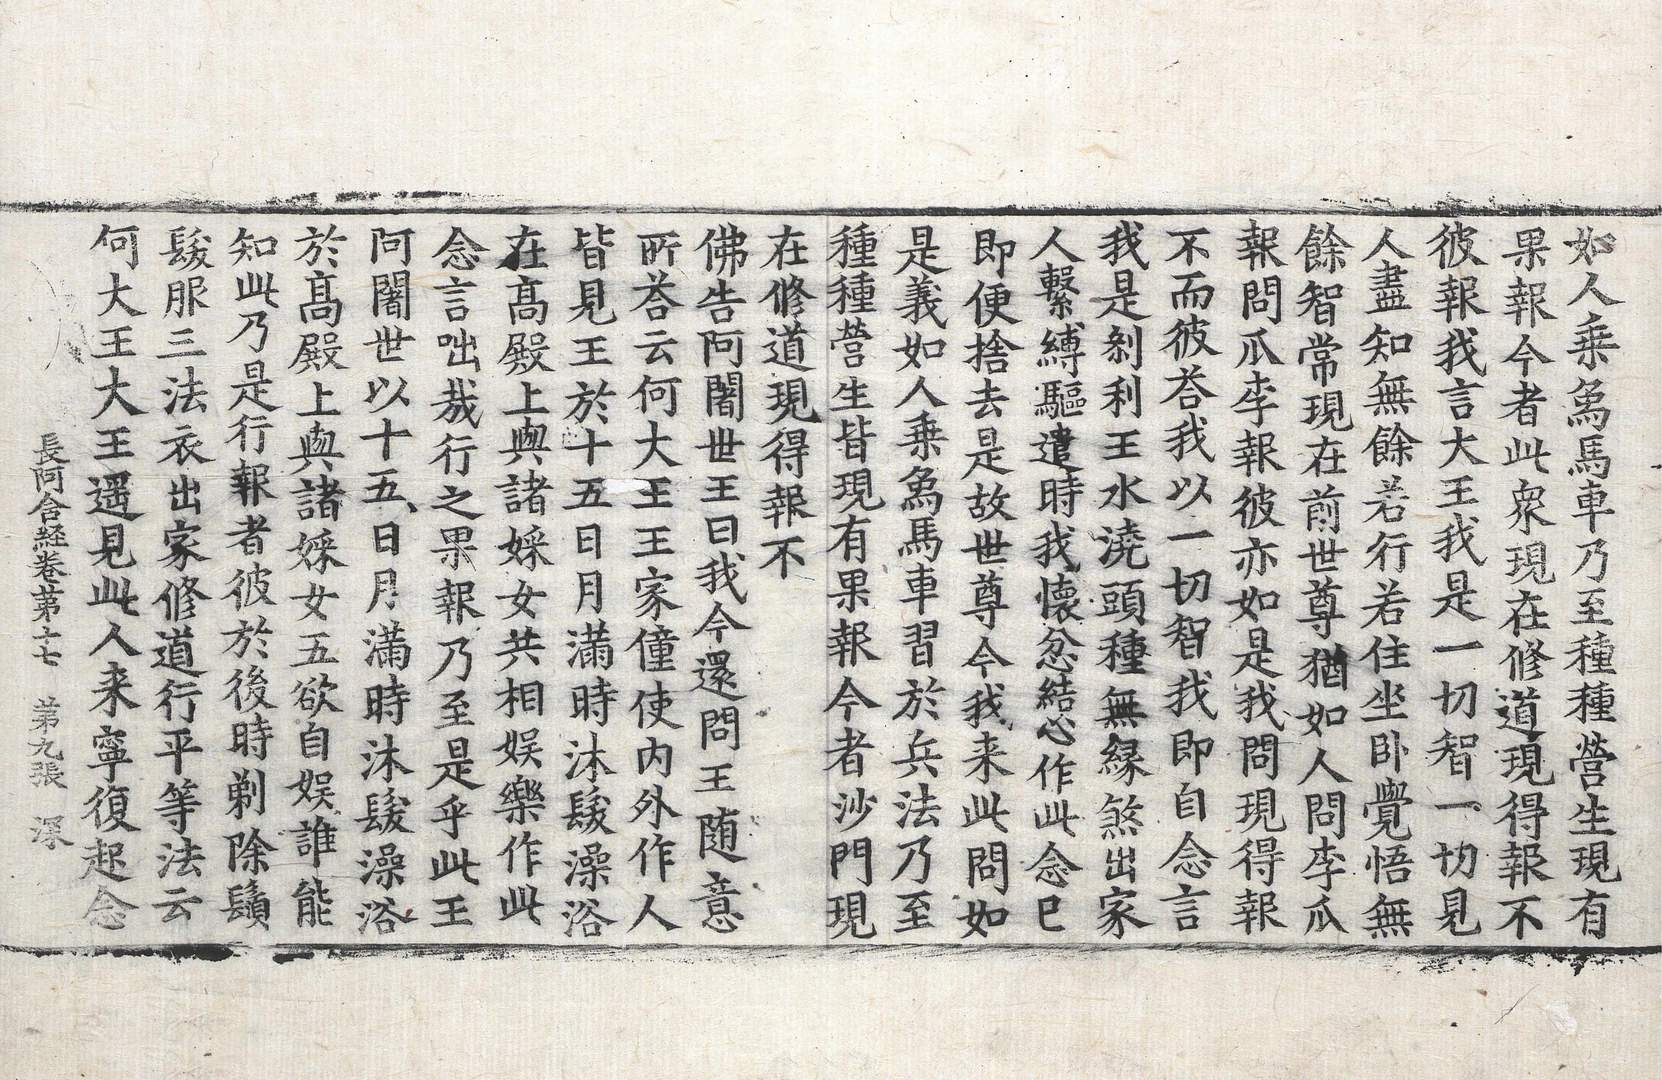 如人乗𤉢馬車乃至種種營生現有
果報今者此衆現在修道現得報不
彼報我言大王我是一切智一切見
人盡知無餘若行若住坐卧覺悟無
餘智常現在前世尊猶如人問李瓜
報問瓜李報彼亦如是我問現得報
不而彼荅我以一切智我即自念言
我是剎利王水澆頭種無縁煞出家
人繋縛驅遣時我懷忿結心作此念已
即便捨去是故世尊今我来此問如
是義如人乗𤉢馬車習於兵法乃至
種種營生皆現有果報今者沙門現
在修道現得報不
佛告阿闍世王曰我今還問王随意
所荅云何大王王家僮使内外作人
皆見王於十五日月滿時沐髮澡浴
在髙殿上與諸婇女共相娯樂作此
念言咄哉行之果報乃至是乎此王
阿闍世以十五日月滿時沐髮澡浴
於髙殿上與諸婇女五欲自娯誰能
知此乃是行報者彼於後時剃除鬚
髮服三法衣出家修道行平等法云
何大王大王遥見此人来寧復起念
長阿含経巻苐十七 苐九張 深